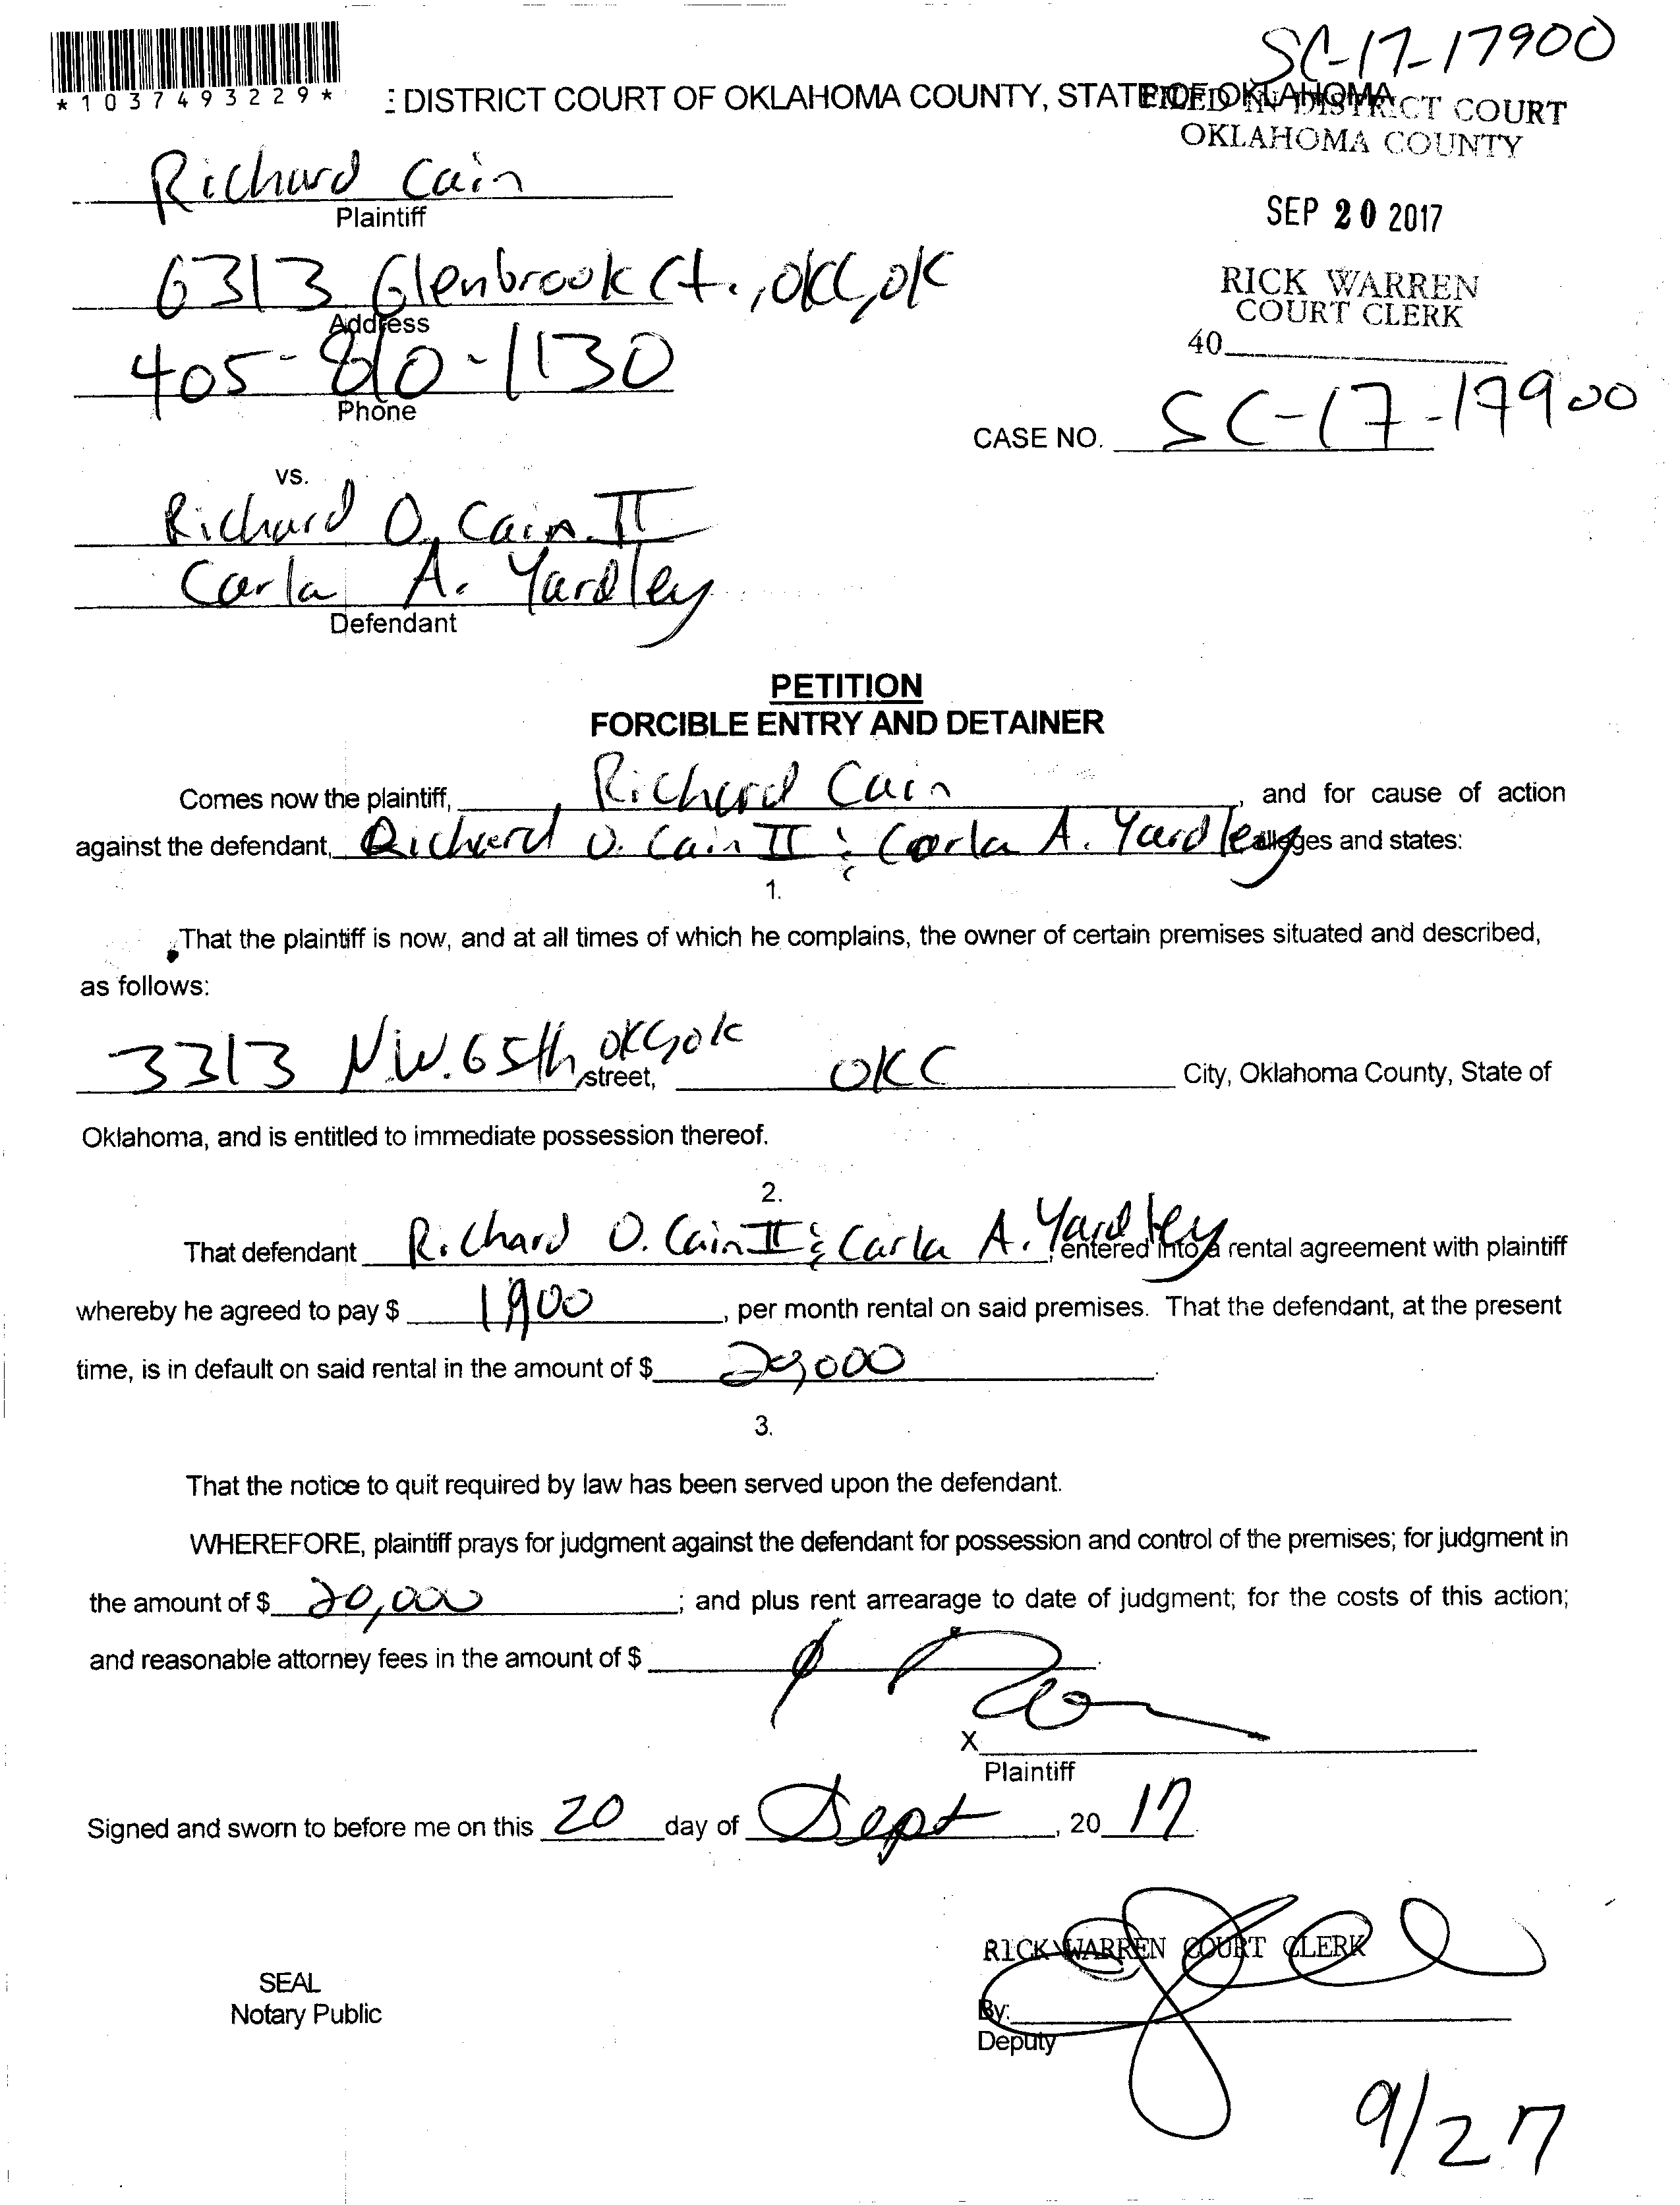 SC-17-17900
*1037493229*
: DISTRICT COURT OF OKLAHOMA COUNTY, STATE OF OKLAHOMA
FILED IN DISTRICT COURT
OKLAHOMA COUNTY
Richard Cain
Plaintiff
SEP 20 2017
6313 Glenbrook Ct., OKC, OK
Address
RICK WARREN
COURT CLERK
40
405-810-1130
Phone
CASE NO. SC-17-17900
vs.
Richard O. Cain II
Carla A. Yardley
Defendant
PETITION
FORCIBLE ENTRY AND DETAINER
Comes now the plaintiff, Richard Cain, and for cause of action
against the defendant, Richard O. Cain II & Carla A. Yardley alleges and states:
1.
That the plaintiff is now, and at all times of which he complains, the owner of certain premises situated and described,
as follows:
3313 N.W. 65th OKC, OK street, OKC City, Oklahoma County, State of
Oklahoma, and is entitled to immediate possession thereof.
2.
That defendant Richard O. Cain II & Carla A. Yardley, entered into a rental agreement with plaintiff
whereby he agreed to pay $ 1900, per month rental on said premises. That the defendant, at the present
time, is in default on said rental in the amount of $ 20,000.
3.
That the notice to quit required by law has been served upon the defendant.
WHEREFORE, plaintiff prays for judgment against the defendant for possession and control of the premises; for judgment in
the amount of $ 20,000; and plus rent arrearage to date of judgment; for the costs of this action;
and reasonable attorney fees in the amount of $
X
Plaintiff
Signed and sworn to before me on this 20 day of Sept, 20 17.
RICK WARREN COURT CLERK
SEAL
Notary Public
By:
Deputy
9/27